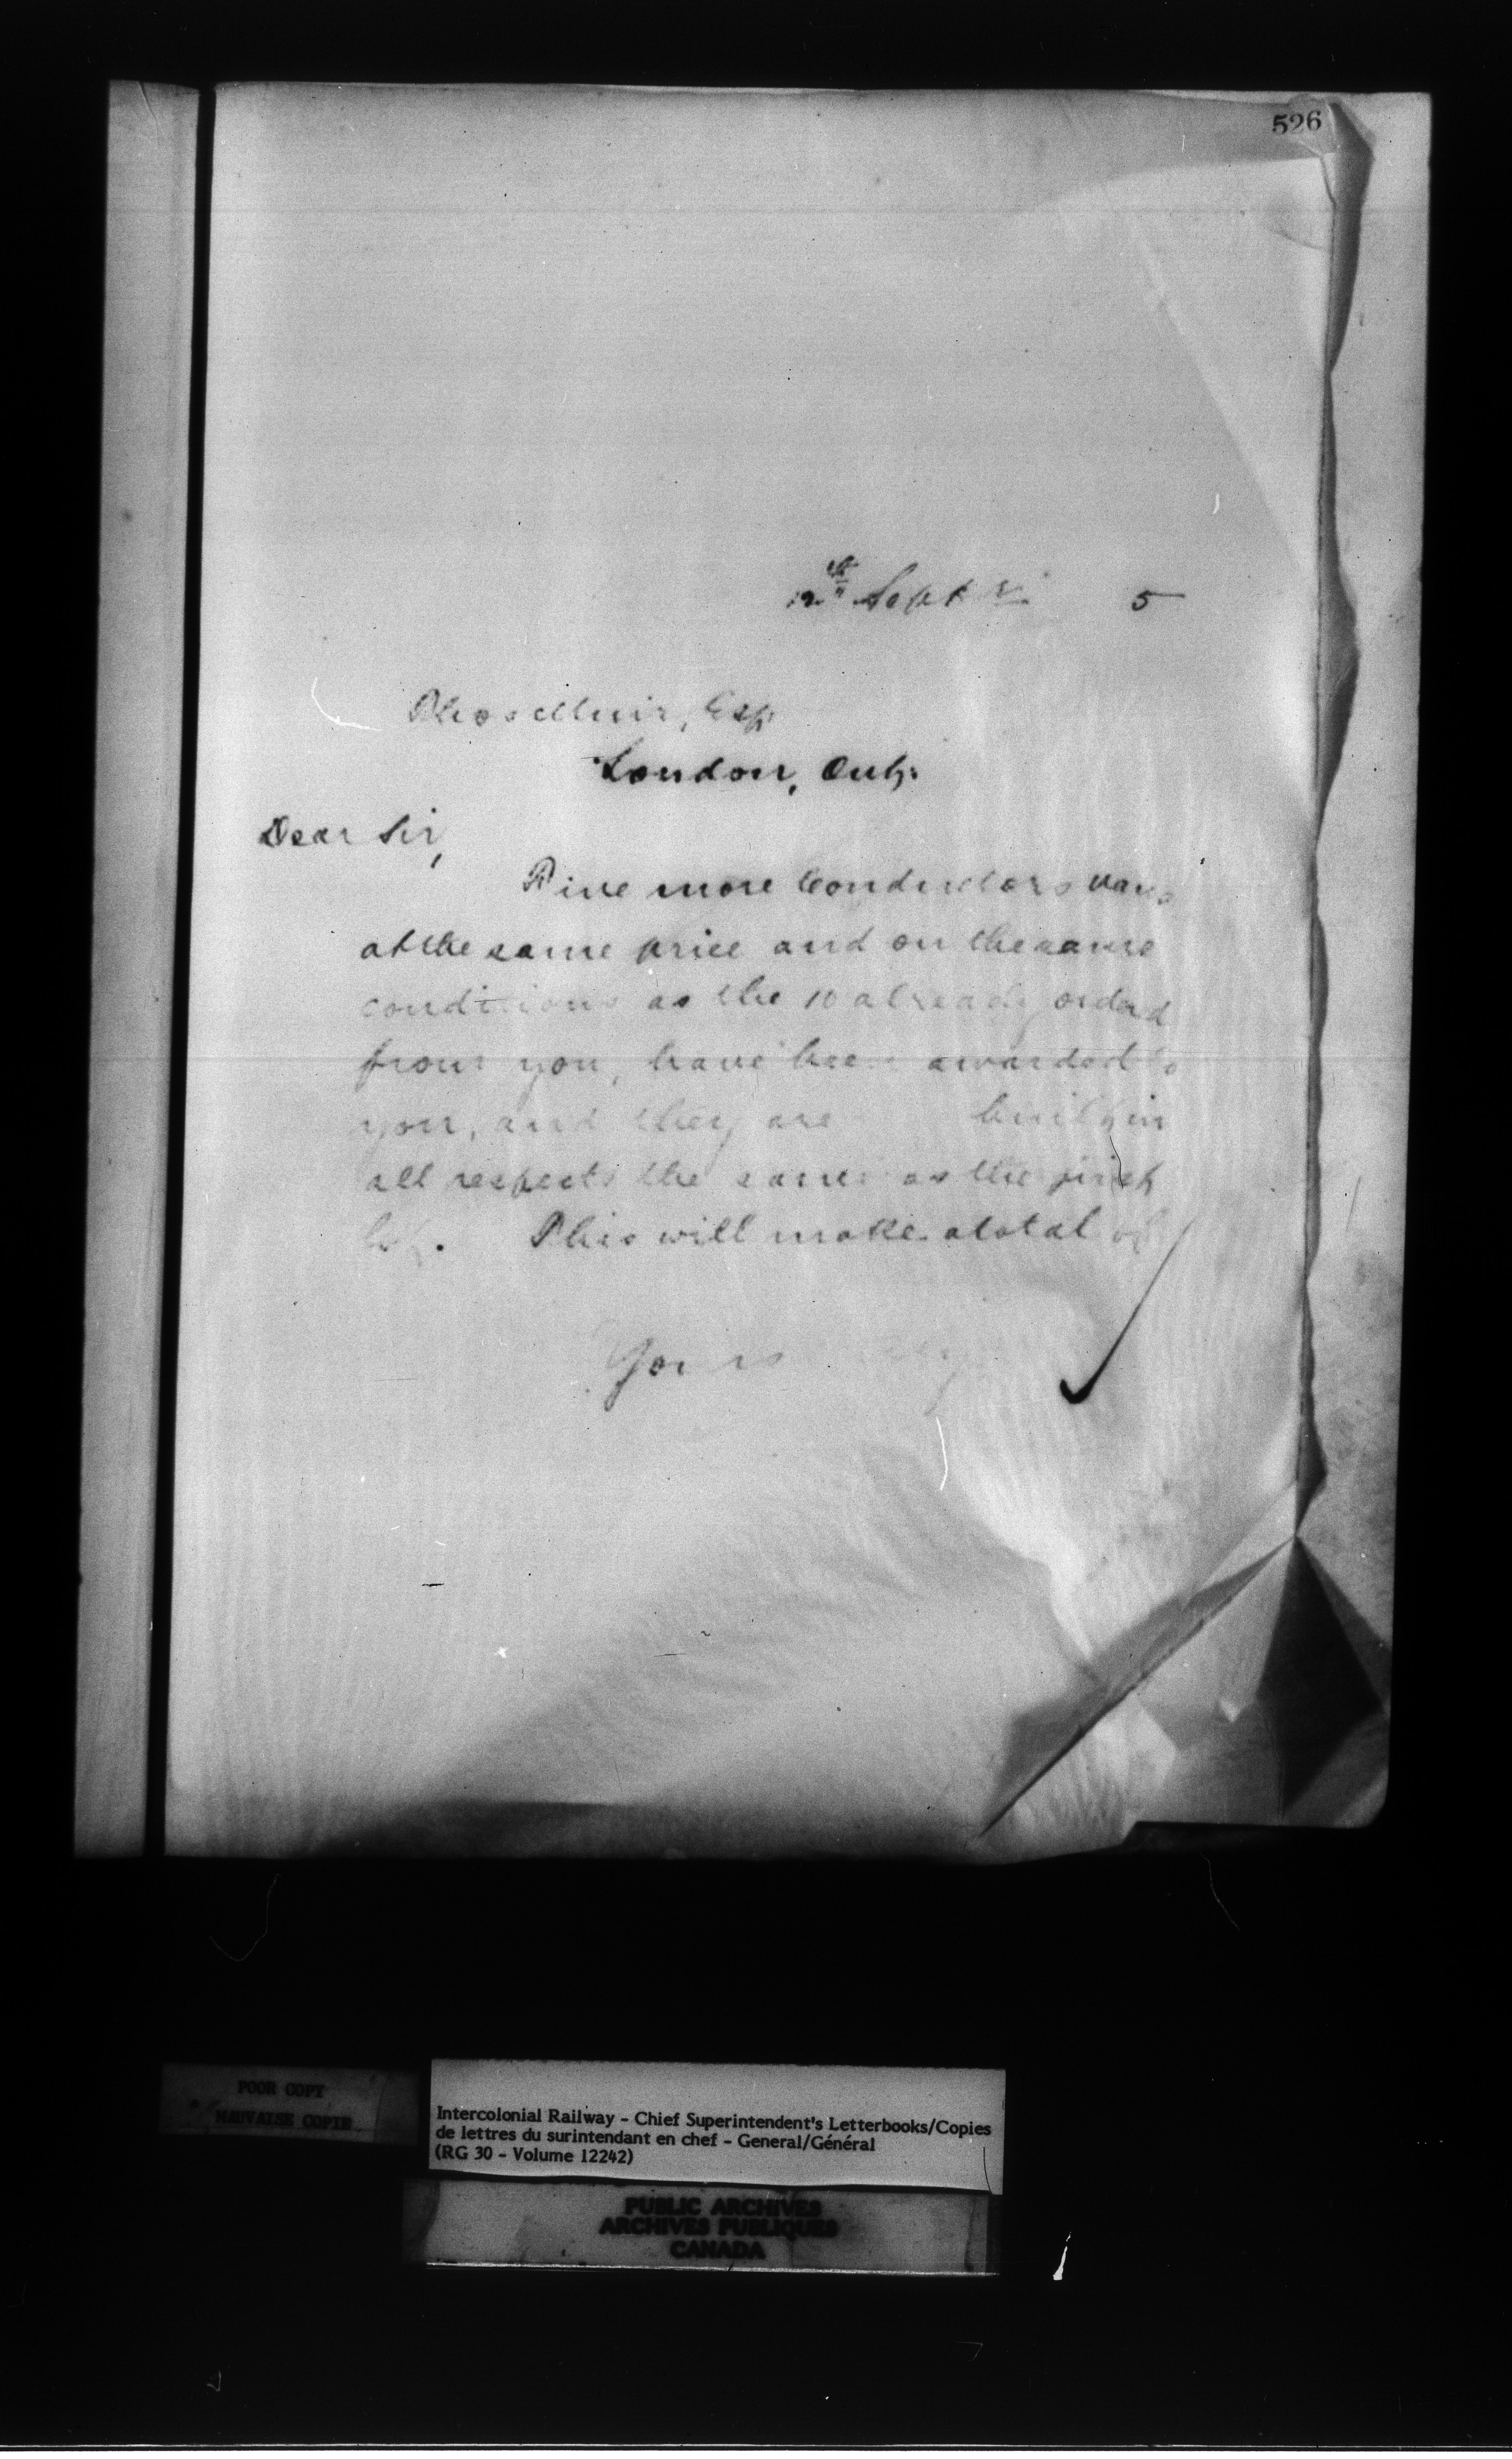 526
12th Septr 5
Thos Muir, Esq.
London, Ont.
Dear Sir,
Five more Conductors vans
at the same price and on the same
conditions as the 10 already ordered
from you, have been awarded to
you, and they are built in
all respects the same as the first
lot. This will make a total of
Yours
POOR COPY
MAUVAISE COPIE
Intercolonial Railway - Chief Superintendent's Letterbooks/Copies
de lettres du surintendant en chef - General/Général
(RG 30 - Volume 12242)
PUBLIC ARCHIVES
ARCHIVES PUBLIQUES
CANADA